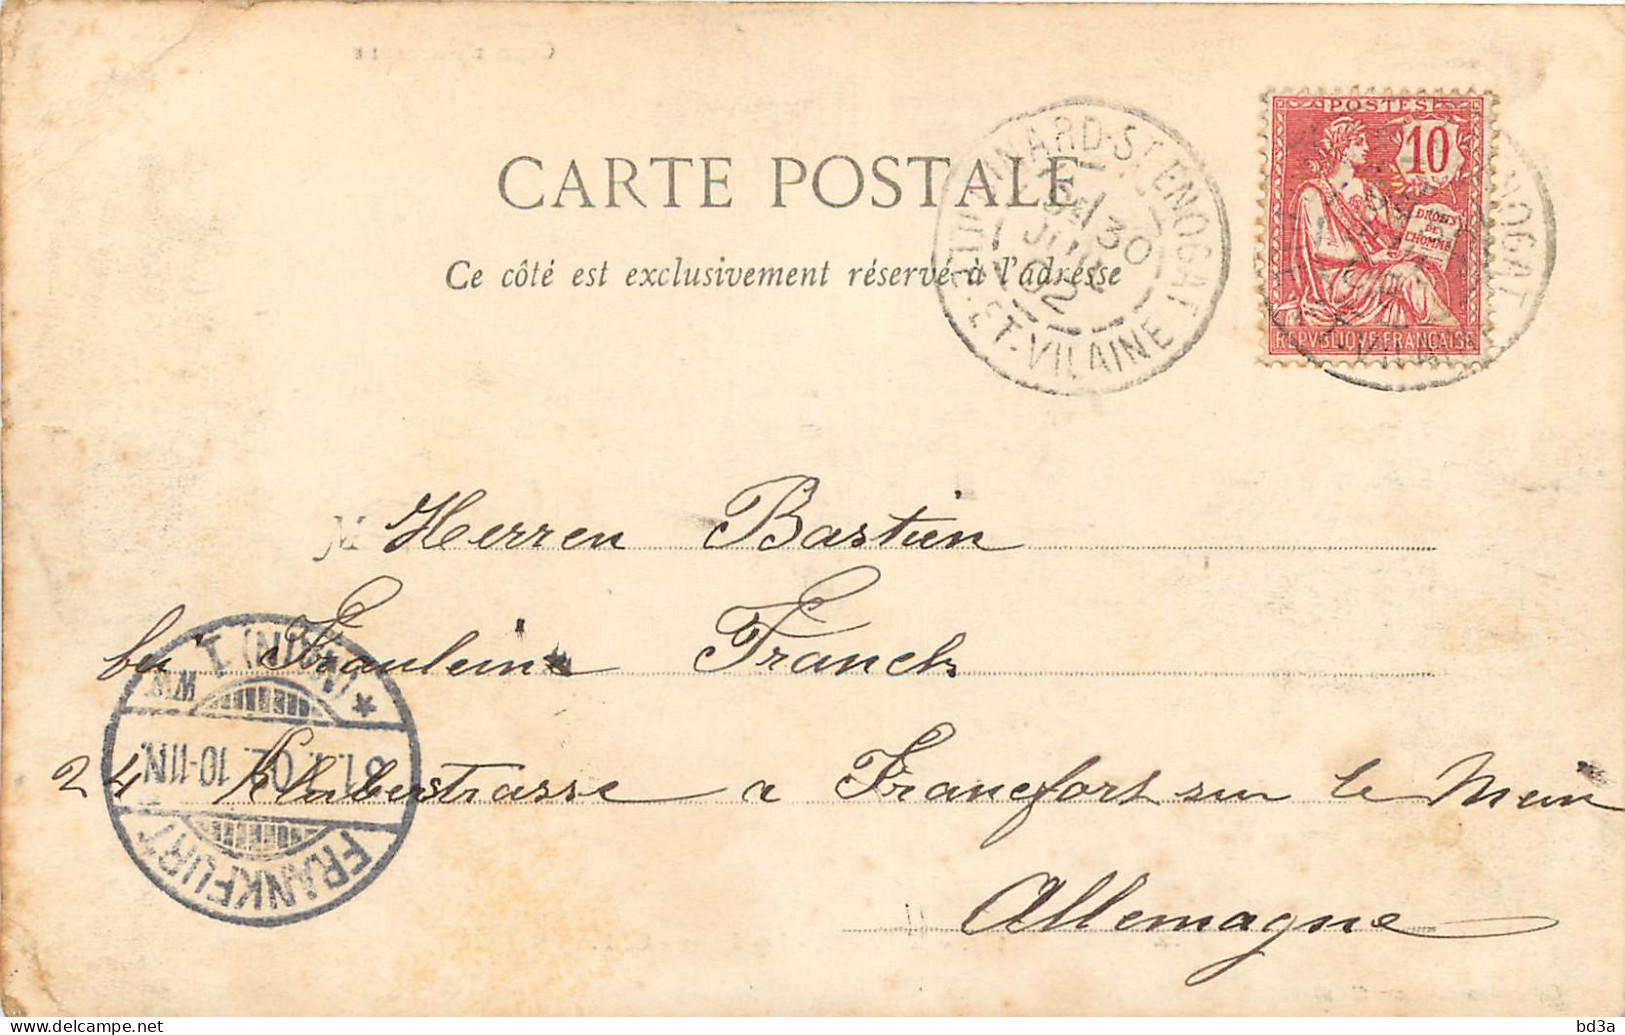 POSTES
10
DROITS
DE
L'HOMME
REPVBLIQVE FRANÇAISE
CARTE POSTALE
Ce côté est exclusivement réservé à l'adresse
DINARD-ST ENOGAT
30
JUIL
02
ILLE-ET-VILAINE
M
Herren Bastien
bei Fraulein Franck
24 Kluberstrasse a Francfort sur le Mein
Allemagne
FRANKFURT
31.7.02. 10-11N.
(MAIN) 1
bd3a